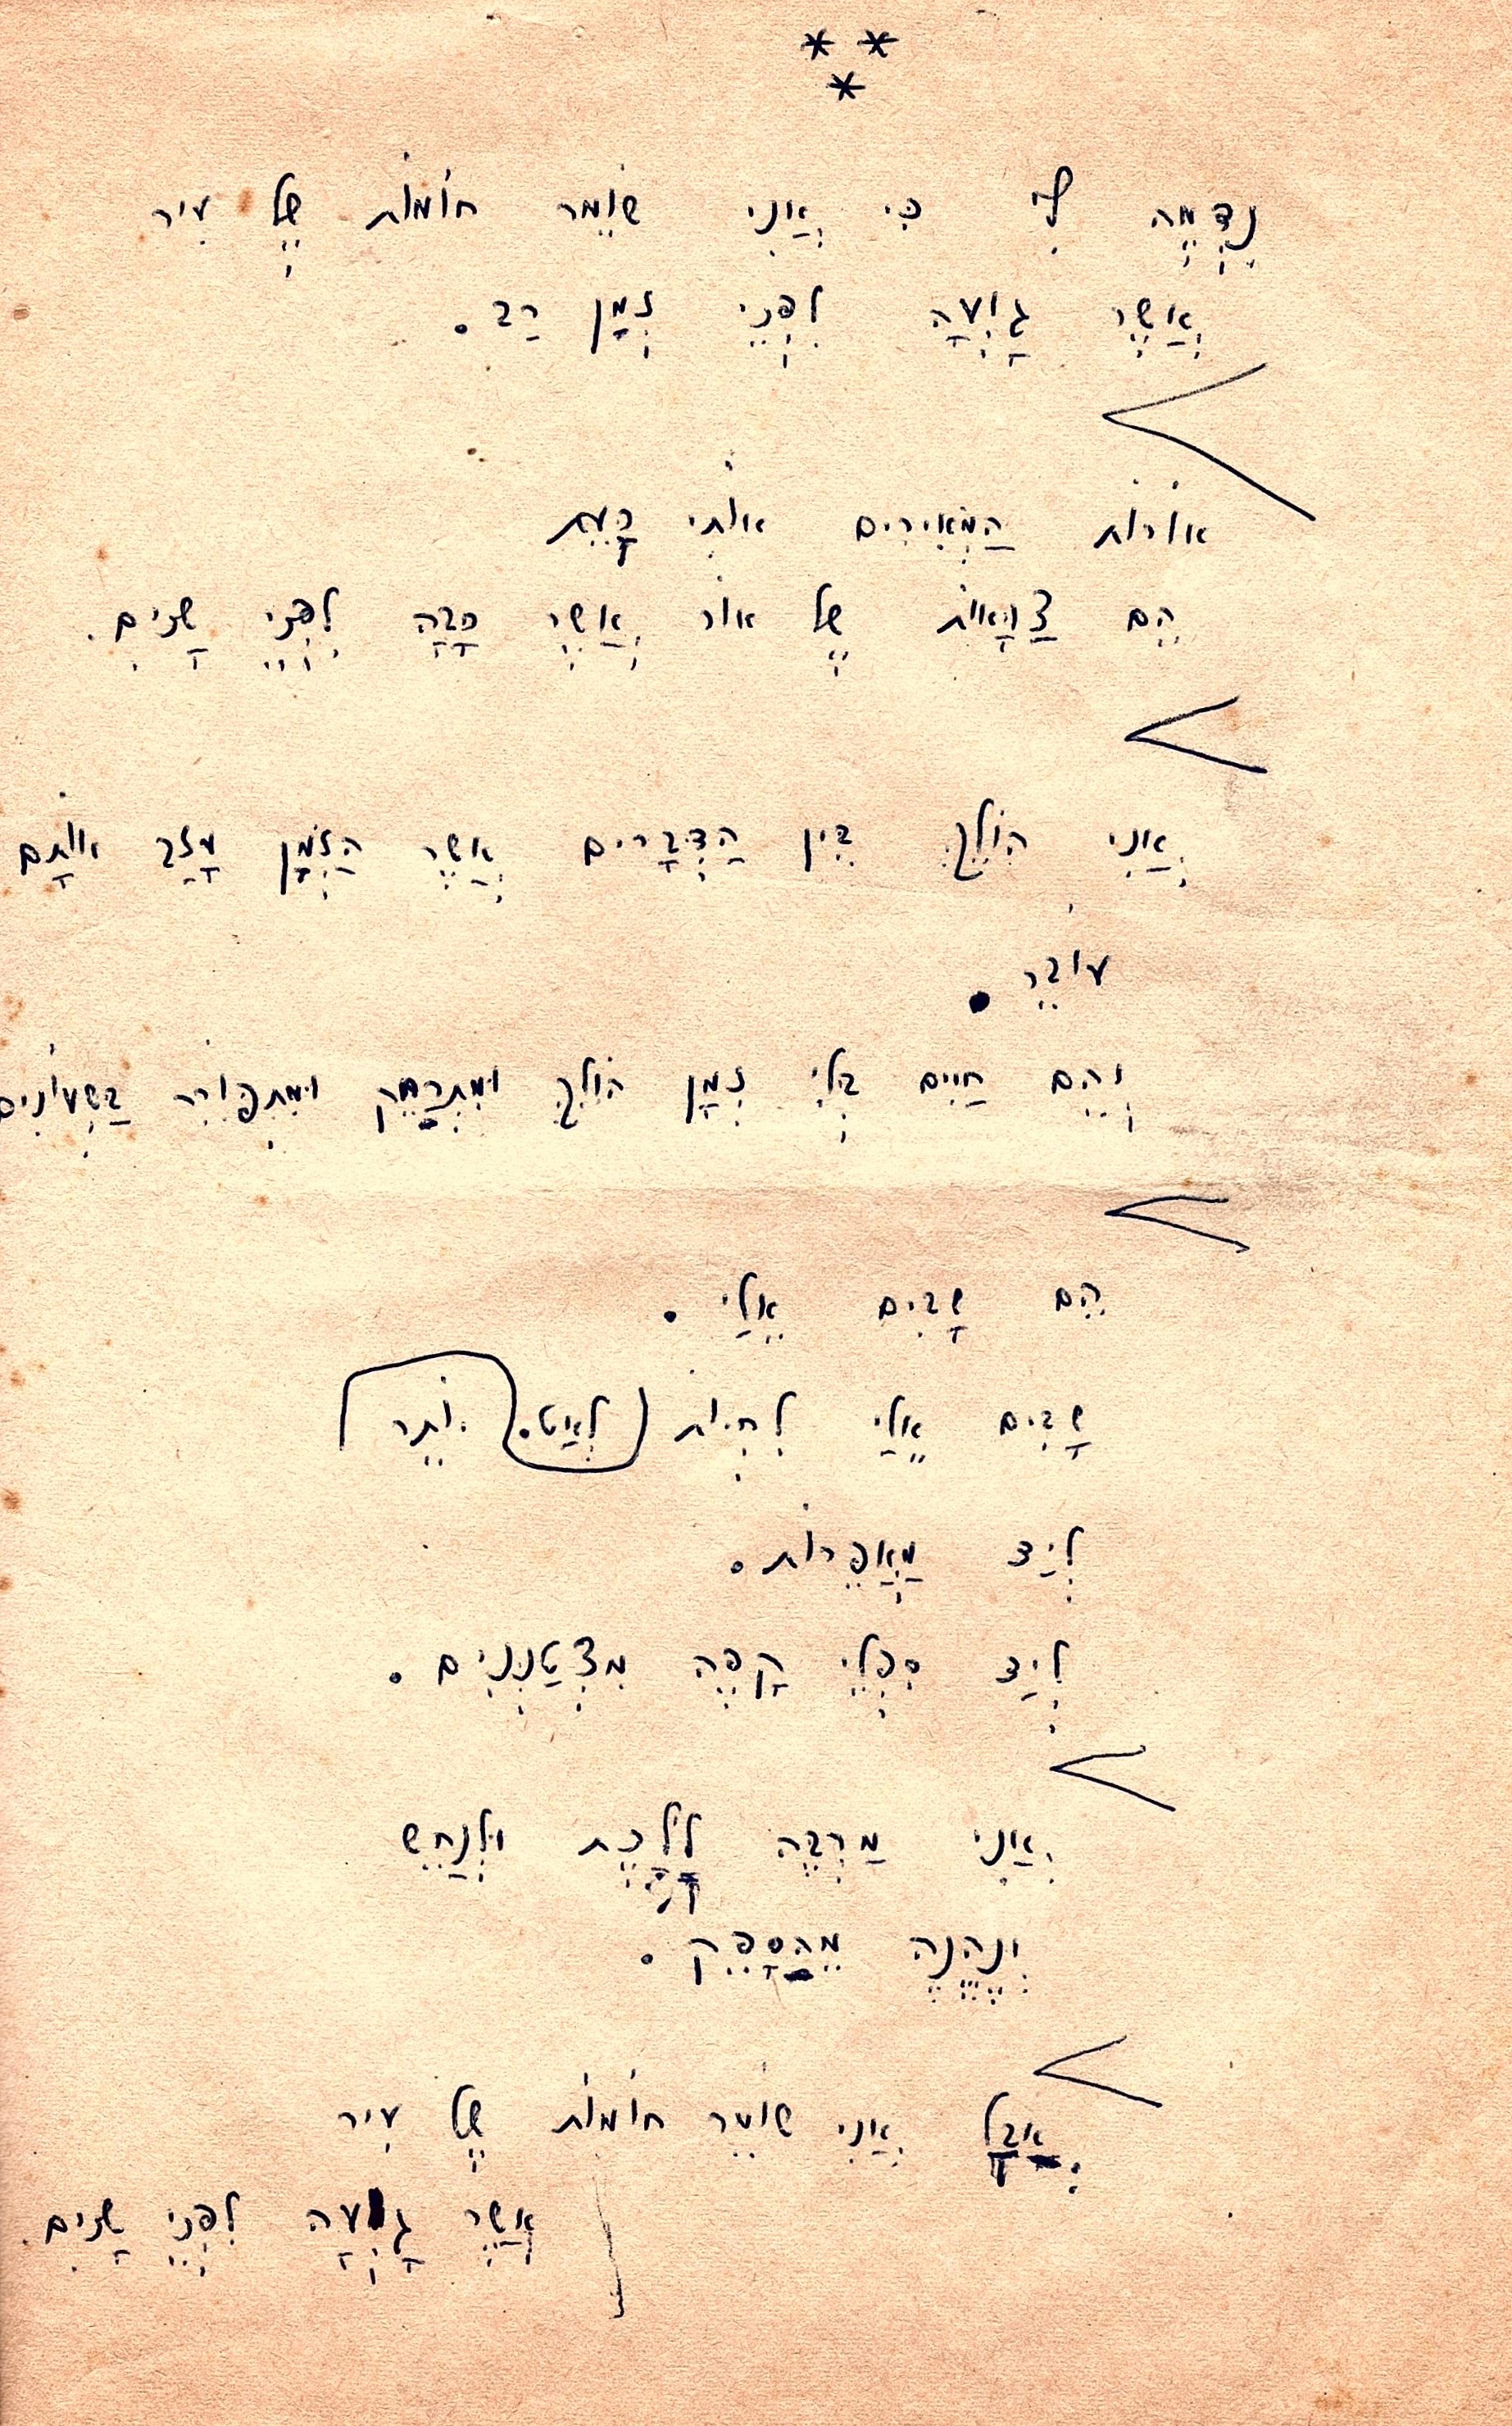 * *
*
נִדְמֶה לִי כִּי אֲנִי שׁוֹמֵר חוֹמוֹת שֶׁל עִיר
אֲשֶׁר גָּוְעָה לִפְנֵי זְמָן רַב.
אוֹרוֹת הַמְּאִירִים אוֹתִי כָּעֵת
הֵם צַוָּאוֹת שֶׁל אוֹר אֲשֶׁר כָּבָה לִפְנֵי שָׁנִים.
אֲנִי הוֹלֵךְ בֵּין הַדְּבָרִים אֲשֶׁר הַזְּמָן עָזַב אוֹתָם
עוֹבֵר.
וְהֵם חַיִּים בְּלִי זְמָן הוֹלֵךְ וּמִתְרַחֵק וּמִתְפּוֹרֵר בַּשְּעוֹנִים
הֵם שָׁבִים אֵלַי.
שָׁבִים אֵלַי לִחְיוֹת (לְאַט. יוֹתֵר
לְיַד מַאֲפֵרוֹת.
לְיַד סִפְלֵי קָפֶה מִצְטַנְּנִים.
אֲנִי מַרְבֶּה לָלֶכֶת וּלְנַחֵשׁ
וְנֶהֱנֶה מֵהַסָּפֵק.
אֲבָל אֲנִי שׁוֹמֵר חוֹמוֹת שֶׁל עִיר
אֲשֶׁר גָּוְעָה לִפְנֵי שָׁנִים.